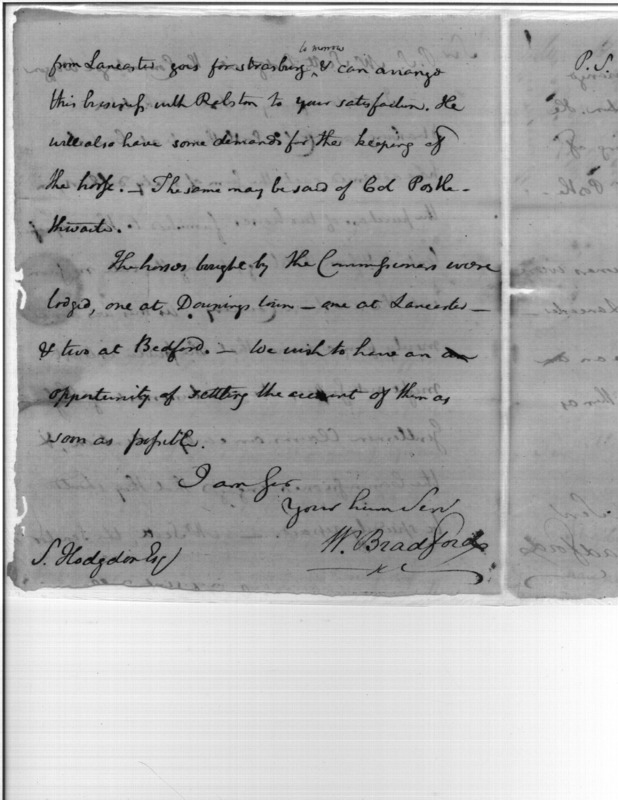 to morrow
from Lancaster goes for Strasburg ^ & can arrange
this business with Ralston to your satisfaction. He
will also have some demands for the keeping of
the horse. — The same may be said of Col Postle-
thwaite.
The horses bought by the Commissioners were
lodged, one at Downings town — one at Lancaster —
& two at Bedford. — We wish to have an an
opportunity of settling the account of them as
soon as possible.
I am Sir
Your hum Serv
W. Bradford
S. Hodgdon Esq
P.S.